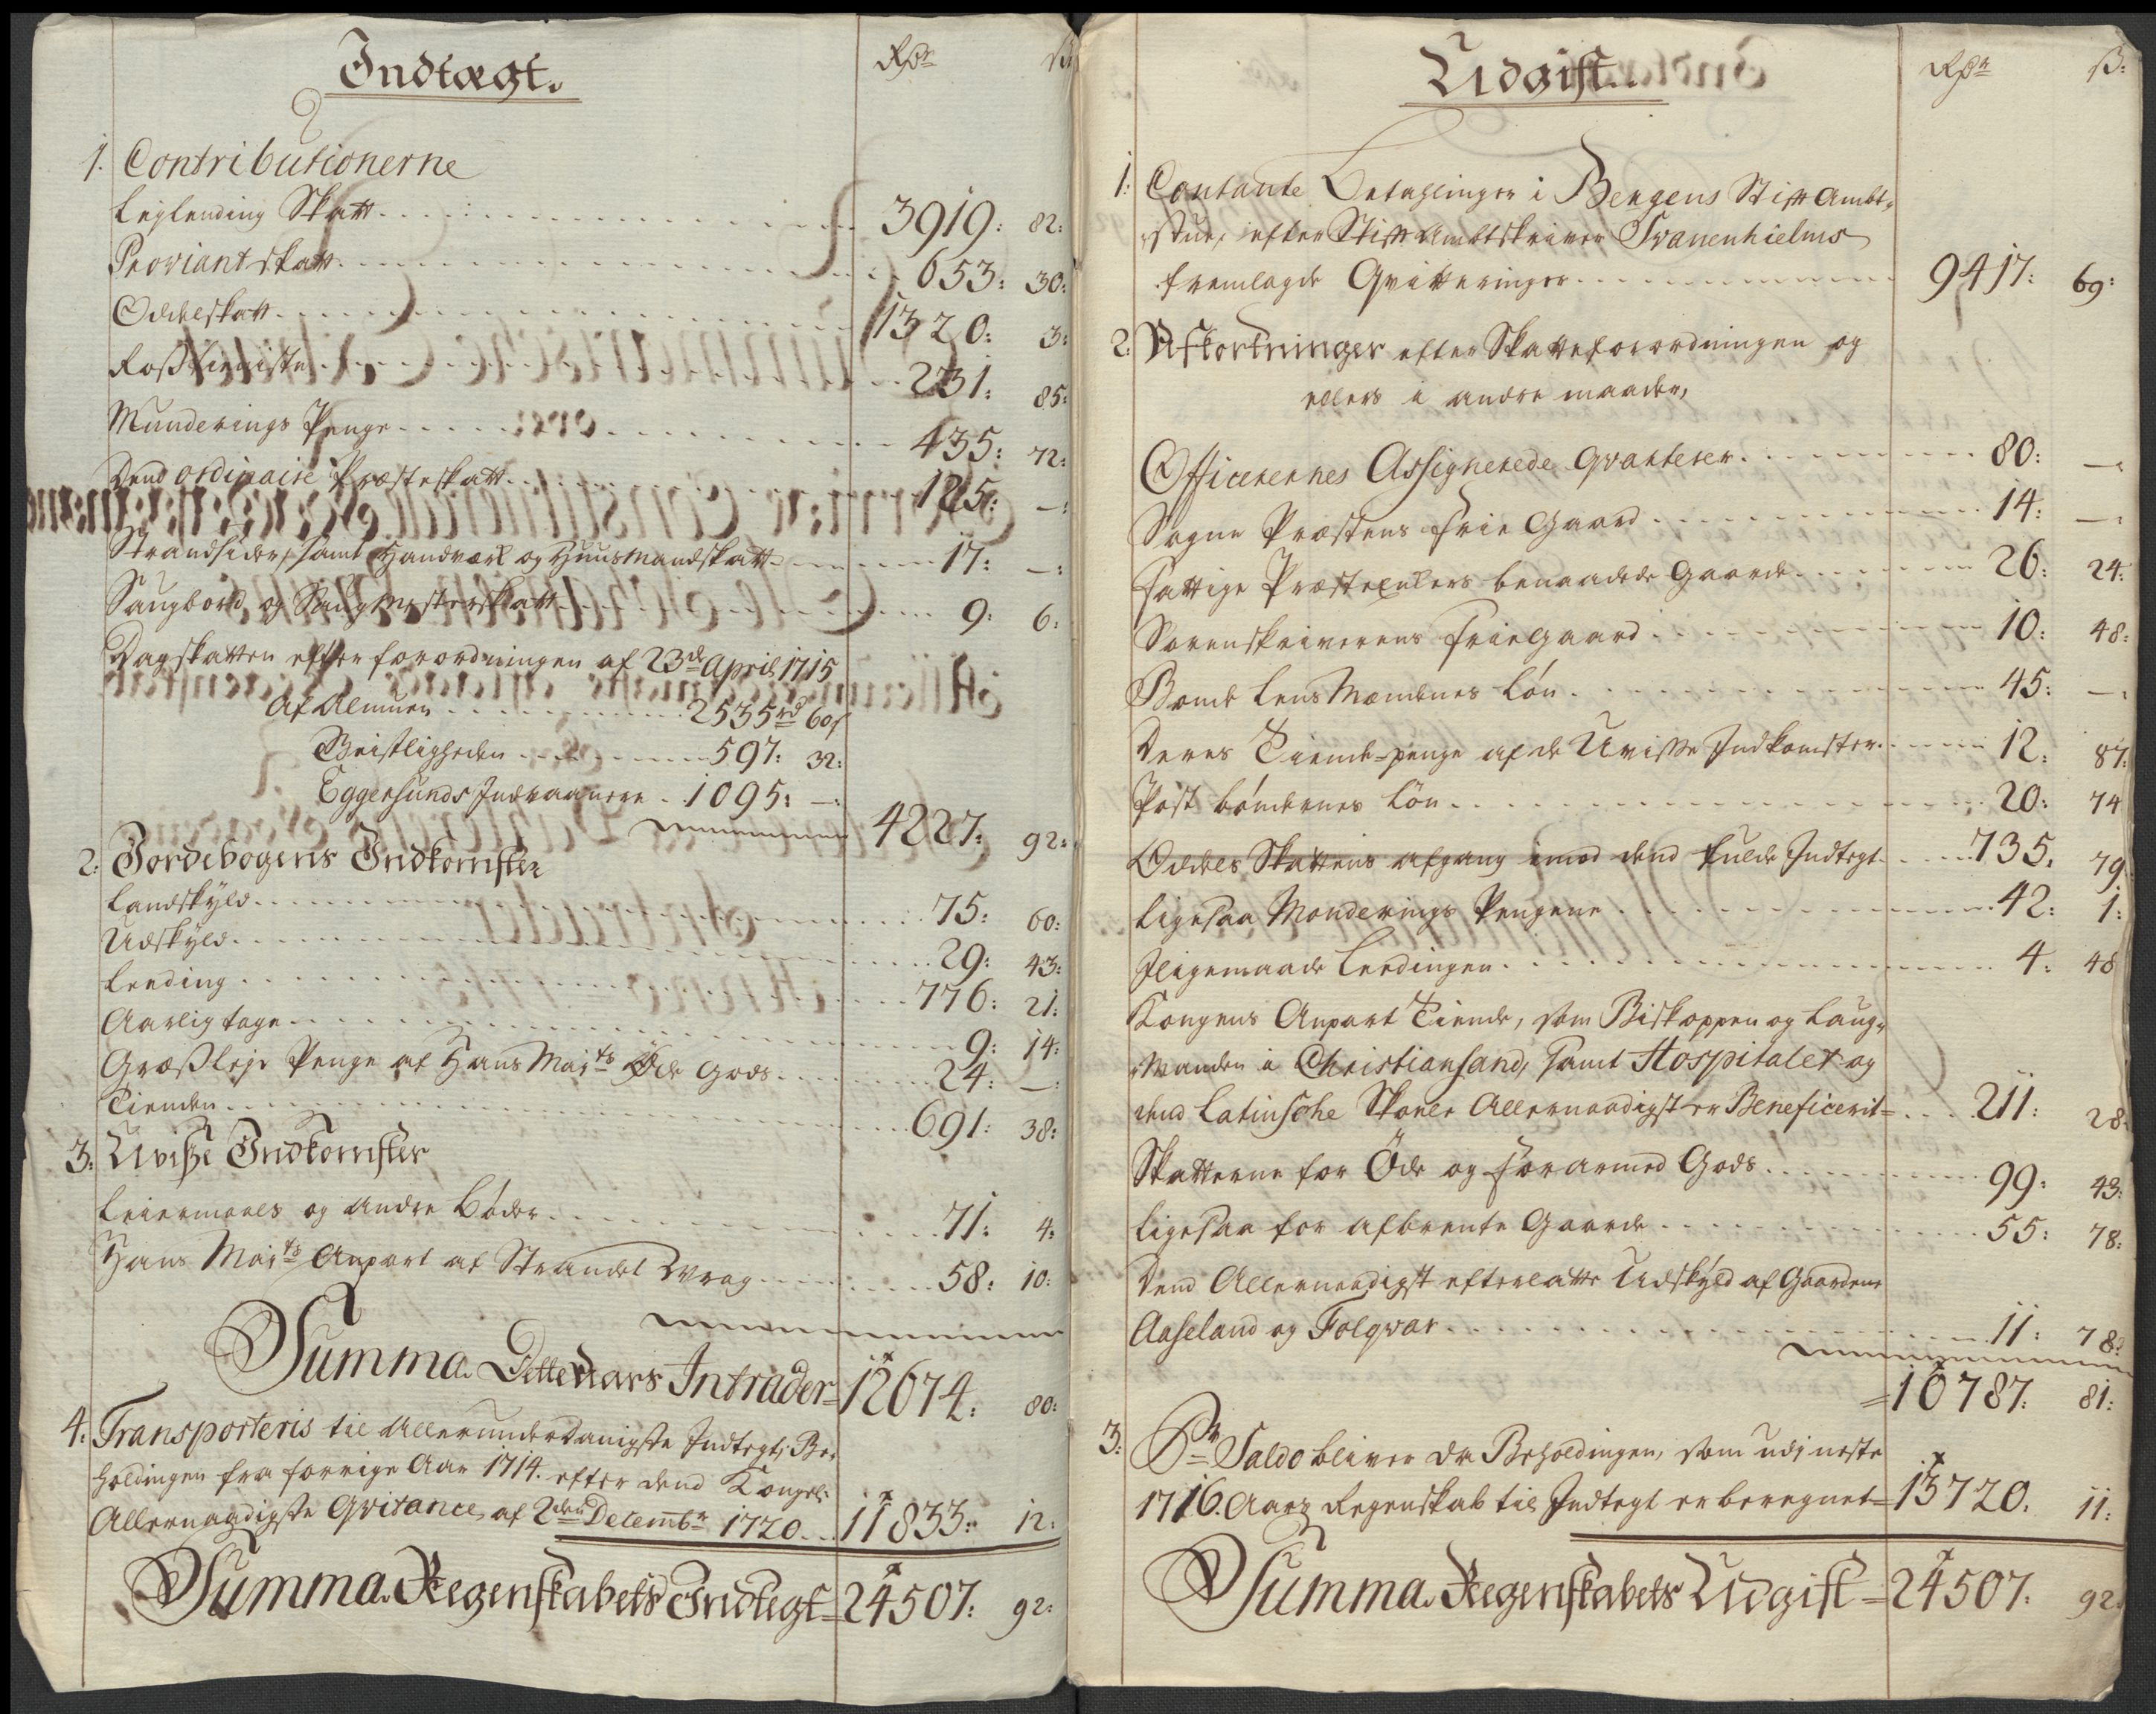 Indtægt.
Rdr ß
1. Contributionerne
Leylending Skatt 3919: 82:
Proviantskatt 653: 30:
Oddelskatt 1320: 3:
Rosstieniste 231: 85:
Munderings Penge 435: 72:
Dend ordinaire Præsteskatt 125: —:
Strandsider, samt Handværk og Huusmandskatt 17: —:
Saugbord og Saugmesterskatt 9: 6:
Dagskatten efter forordningen af 23de April 1715
Af Almuen 2535rd 60ß
Geistligheden 597: 32:
Eggersunds Indvaanere 1095: —:
4227: 92:
2: Jordebogens Indkomster
Landskyld 75: 60:
Udskyld 29: 43:
Leeding 776: 21:
Aarlig tage 9: 14:
Græsleye Penge af Hans Majts Øde Gods 24: —:
Tienden 691: 38:
3: Uvisse Indkomster
Leiermaals og andre Bøder 71: 4:
Hans Maits Anpart af Strandet Wrag 58: 10:
Summa. Dette Aars Intrader = 12674: 80:
4: Transporteris til Allerunderdanigste Indtegt, Be-
holdingen fra forrige Aar 1714. efter dend Kongel:
Allernaadigste Qvitance af 2den Decembr 1720 11833: 12:
Summa. Regenskabets Indtegt = 24507: 92:
Udgift.
Rdr ß:
1: Contante Betalinger i Bergens Stift Ambt-
stue, efter Stiftambtskriver Svanenhielms
fremlagde Qvitteringer 9417: 69:
2: Afkortninger efter Skatteforordningen og
ellers i andre maader,
Officerernes Assignerede qvarterer 80: —:
Sogne Præstens frie Gaard 14: —:
Fattige Præsteenkers benaadede Gaarde 26: 24:
Sorenskriverens frie Gaard 10: 48:
Bønde Lens Mændenes Løn 45: —:
Deres Tiende-penge af de Uvisse Indkomster 12: 87:
Post bøndernes Løn 20: 74
Oddels Skattens afgang imod dend fulde Indtegt 735. 79
Ligesaa Monderings Pengene 42: 1:
Iligemaade Leedingen 4: 48
Kongens Anpart Tiende, som Biskoppen og Laug-
Manden i Christiansand, samt Hospitalet og
dend Latinsche Skoele Allernaadigst er Beneficerit = 211: 28
Skatterne for Øde og forarmed Gods 99: 43:
Ligesaa for afbrente Gaarde 55: 78:
Dend Allernaadigst efterlatte Udskyld af Gaardene
Aaseland og Folqvar 11: 78:
= 10787: 81:
3: Pr Saldo bliver da Beholdingen, som udj neste
1716. Aars Regenskab til Indtegt er beregnet = 13720. 11:
Summa. Regenskabets Udgift = 24507: 92.